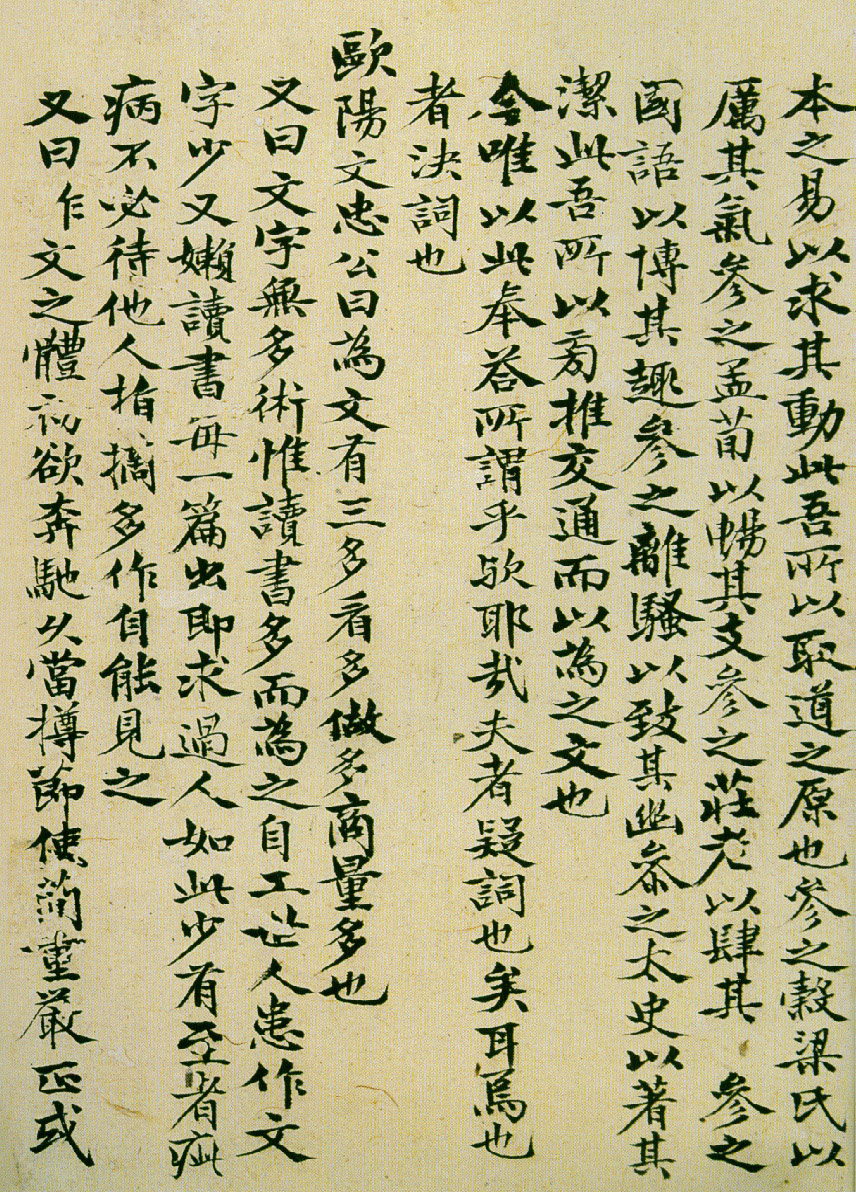 本之易以求其動此吾所以取道之原也參之穀梁氏以
厲其氣參之孟荀以暢其支參之莊老以肆其 參之
國語以博其趣參之離騷以致其幽參之太史以著其
潔此吾所以旁推交通而以為之文也
今唯以此奉答所謂乎歟耶哉夫者疑詞也矣耳焉也
者決詞也
歐陽文忠公曰為文有三多看多做多商量多也
又曰文字無多術惟讀書多而為之自工世人患作文
字少又嬾讀書每一篇出即求過人如此少有至者疵
病不必待他人指擿多作自能見之
又曰作文之體初欲奔馳久當撙節使簡重嚴正或